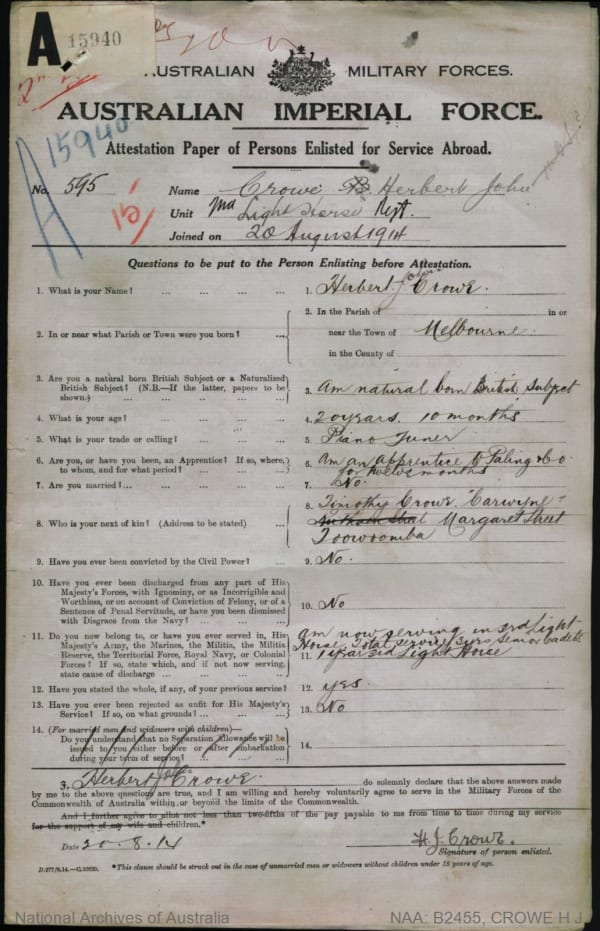 A 15940
AUSTRALIAN MILITARY FORCES.
AUSTRALIAN IMPERIAL FORCE.
15940
A
Attestation Paper of Persons Enlisted for Service Abroad.
No. 595 Name Crowe Herbert John
Unit 2nd Light Horse Regt.
Joined on 20 August 1914
Questions to be put to the Person Enlisting before Attestation.
1. What is your Name? ... ... ... ... 1. Herbert John Crowe.
2. In or near what Parish or Town were you born? ... 2. In the Parish of in or
near the Town of Melbourne.
in the County of
3. Are you a natural born British Subject or a Naturalized
British Subject? (N.B.—If the latter, papers to be
shown.) ... ... ... ... ... 3. Am natural born British subject
4. What is your age? ... ... ... ... 4. 20 years. 10 months
5. What is your trade or calling? ... ... ... 5. Piano Tuner
6. Are you, or have you been, an Apprentice? If so, where,
to whom, and for what period? ... ... ... 6. Am an apprentice to Paling & Co.
for twelve months
7. Are you married? ... ... ... ... 7. No.
8. Who is your next of kin? (Address to be stated) ... 8. Timothy Crowe. "Carwyne"
Margaret Street
Toowoomba
9. Have you ever been convicted by the Civil Power? ... 9. No.
10. Have you ever been discharged from any part of His
Majesty's Forces, with Ignominy, or as Incorrigible and
Worthless, or on account of Conviction of Felony, or of a
Sentence of Penal Servitude, or have you been dismissed
with Disgrace from the Navy? ... ... ... 10. No
11. Do you now belong to, or have you ever served in, His
Majesty's Army, the Marines, the Militia, the Militia
Reserve, the Territorial Force, Royal Navy, or Colonial
Forces? If so, state which, and if not now serving,
state cause of discharge ... ... ... 11. Am now serving in 3rd Light
Horse. Total service yrs. Senior Cadets
1 year 3rd Light Horse
12. Have you stated the whole, if any, of your previous service? 12. yes.
13. Have you ever been rejected as unfit for His Majesty's
Service? If so, on what grounds? ... ... ... 13. No
14. (For married men and widowers with children)—
Do you understand that no Separation Allowance will be
issued to you either before or after embarkation
during your term of service? ... ... ... 14.
I, Herbert John Crowe. do solemnly declare that the above answers made
by me to the above questions are true, and I am willing and hereby voluntarily agree to serve in the Military Forces of the
Commonwealth of Australia within or beyond the limits of the Commonwealth.
And I further agree to allot not less than two-fifths of the pay payable to me from time to time during my service
for the support of my wife and children.*
Date 20.8.14 H.J. Crowe.
Signature of person enlisted.
*This clause should be struck out in the case of unmarried men or widowers without children under 18 years of age.
National Archives of Australia NAA: B2455, CROWE H J